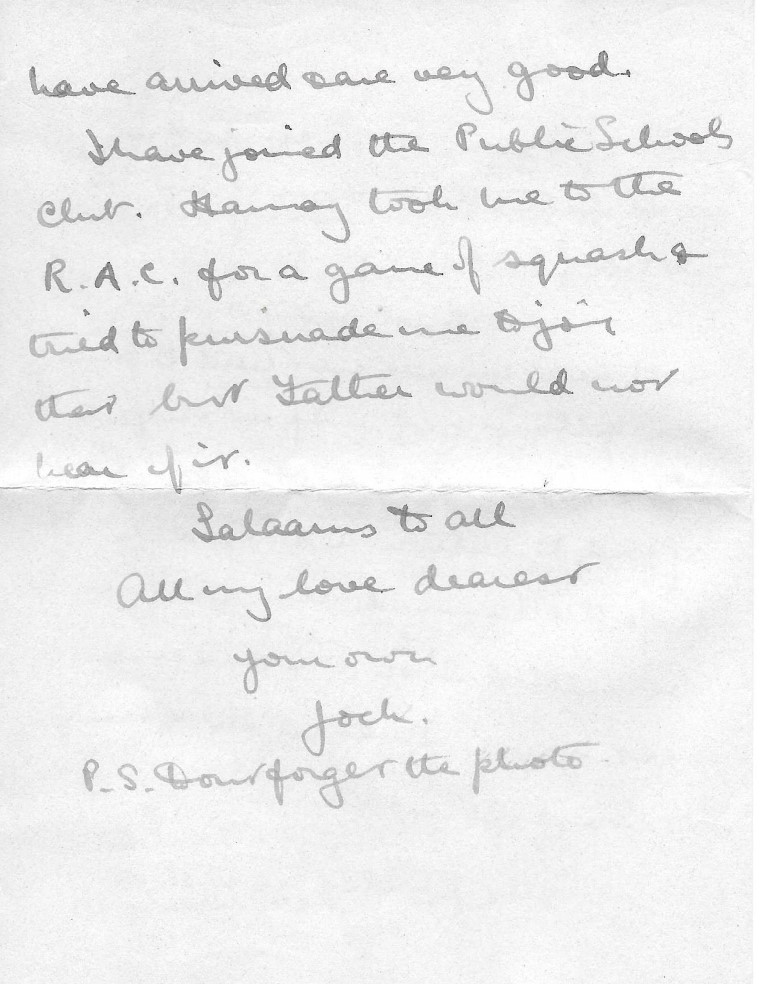 have arrived & are very good.
I have joined the Public Schools
Club. Hannay took me to the
R.A.C. for a game of squash &
tried to pursuade me to join
that but Father would not
hear of it.
Salaams to all
All my love dearest
your own
Jock.
P.S. Dont forget the photo